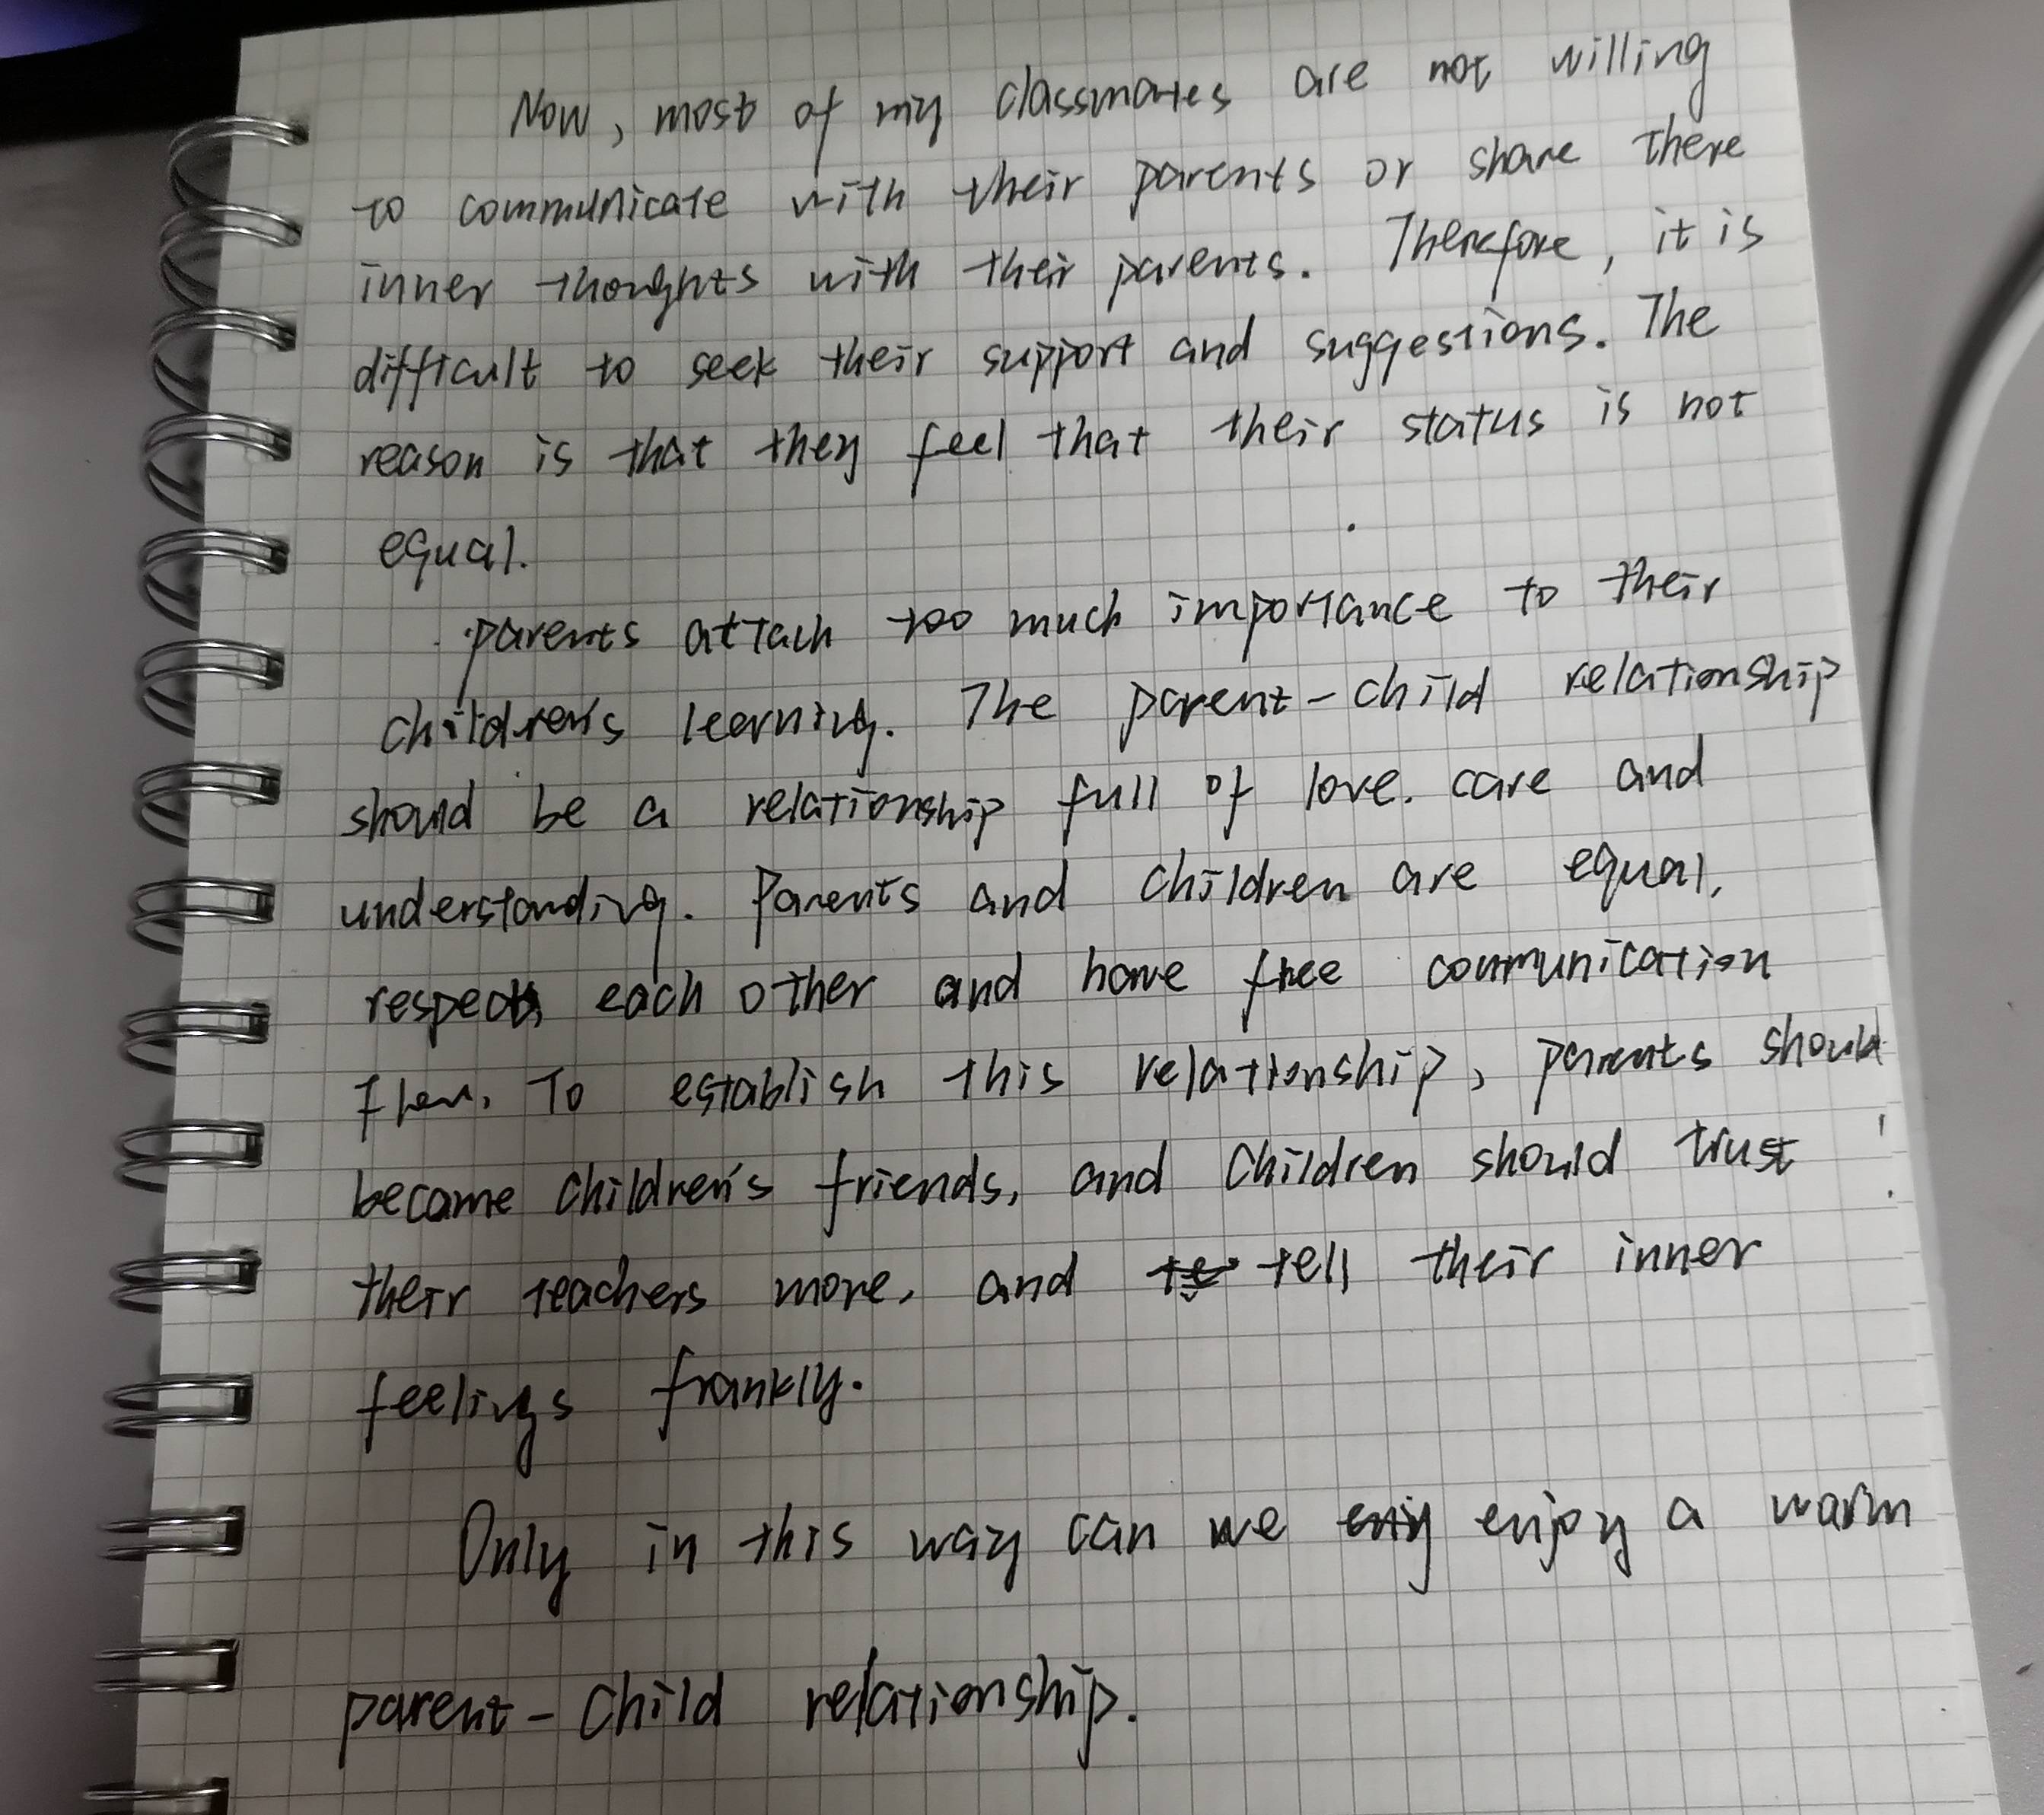 Now, most of my classmates are not willing
to communicate with their parents or share there
inner thoughts with their parents. Therefore, it is
difficult to seek their support and suggestions. The
reason is that they feel that their status is not
equal.
parents attach too much importance to their
children's learning. The parent-child relationship
should be a relationship full of love. care and
understanding. Parents and children are equal,
respect each other and have free communication
To establish this relationship, parents should
become children's friends, and children should trust
their teachers more, and tell their inner
feelings frankly.
Only in this way can we enjoy a warm
parent-child relationship.